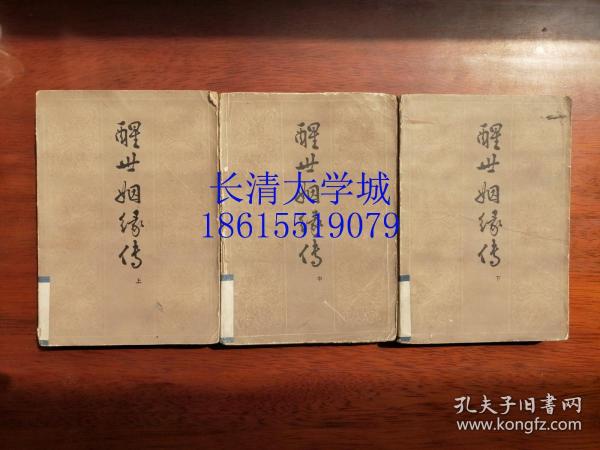 醒世姻缘传
上
醒世姻缘传
中
醒世姻缘传
下
长清大学城
18615519079
孔夫子旧書网
www.kongfz.com